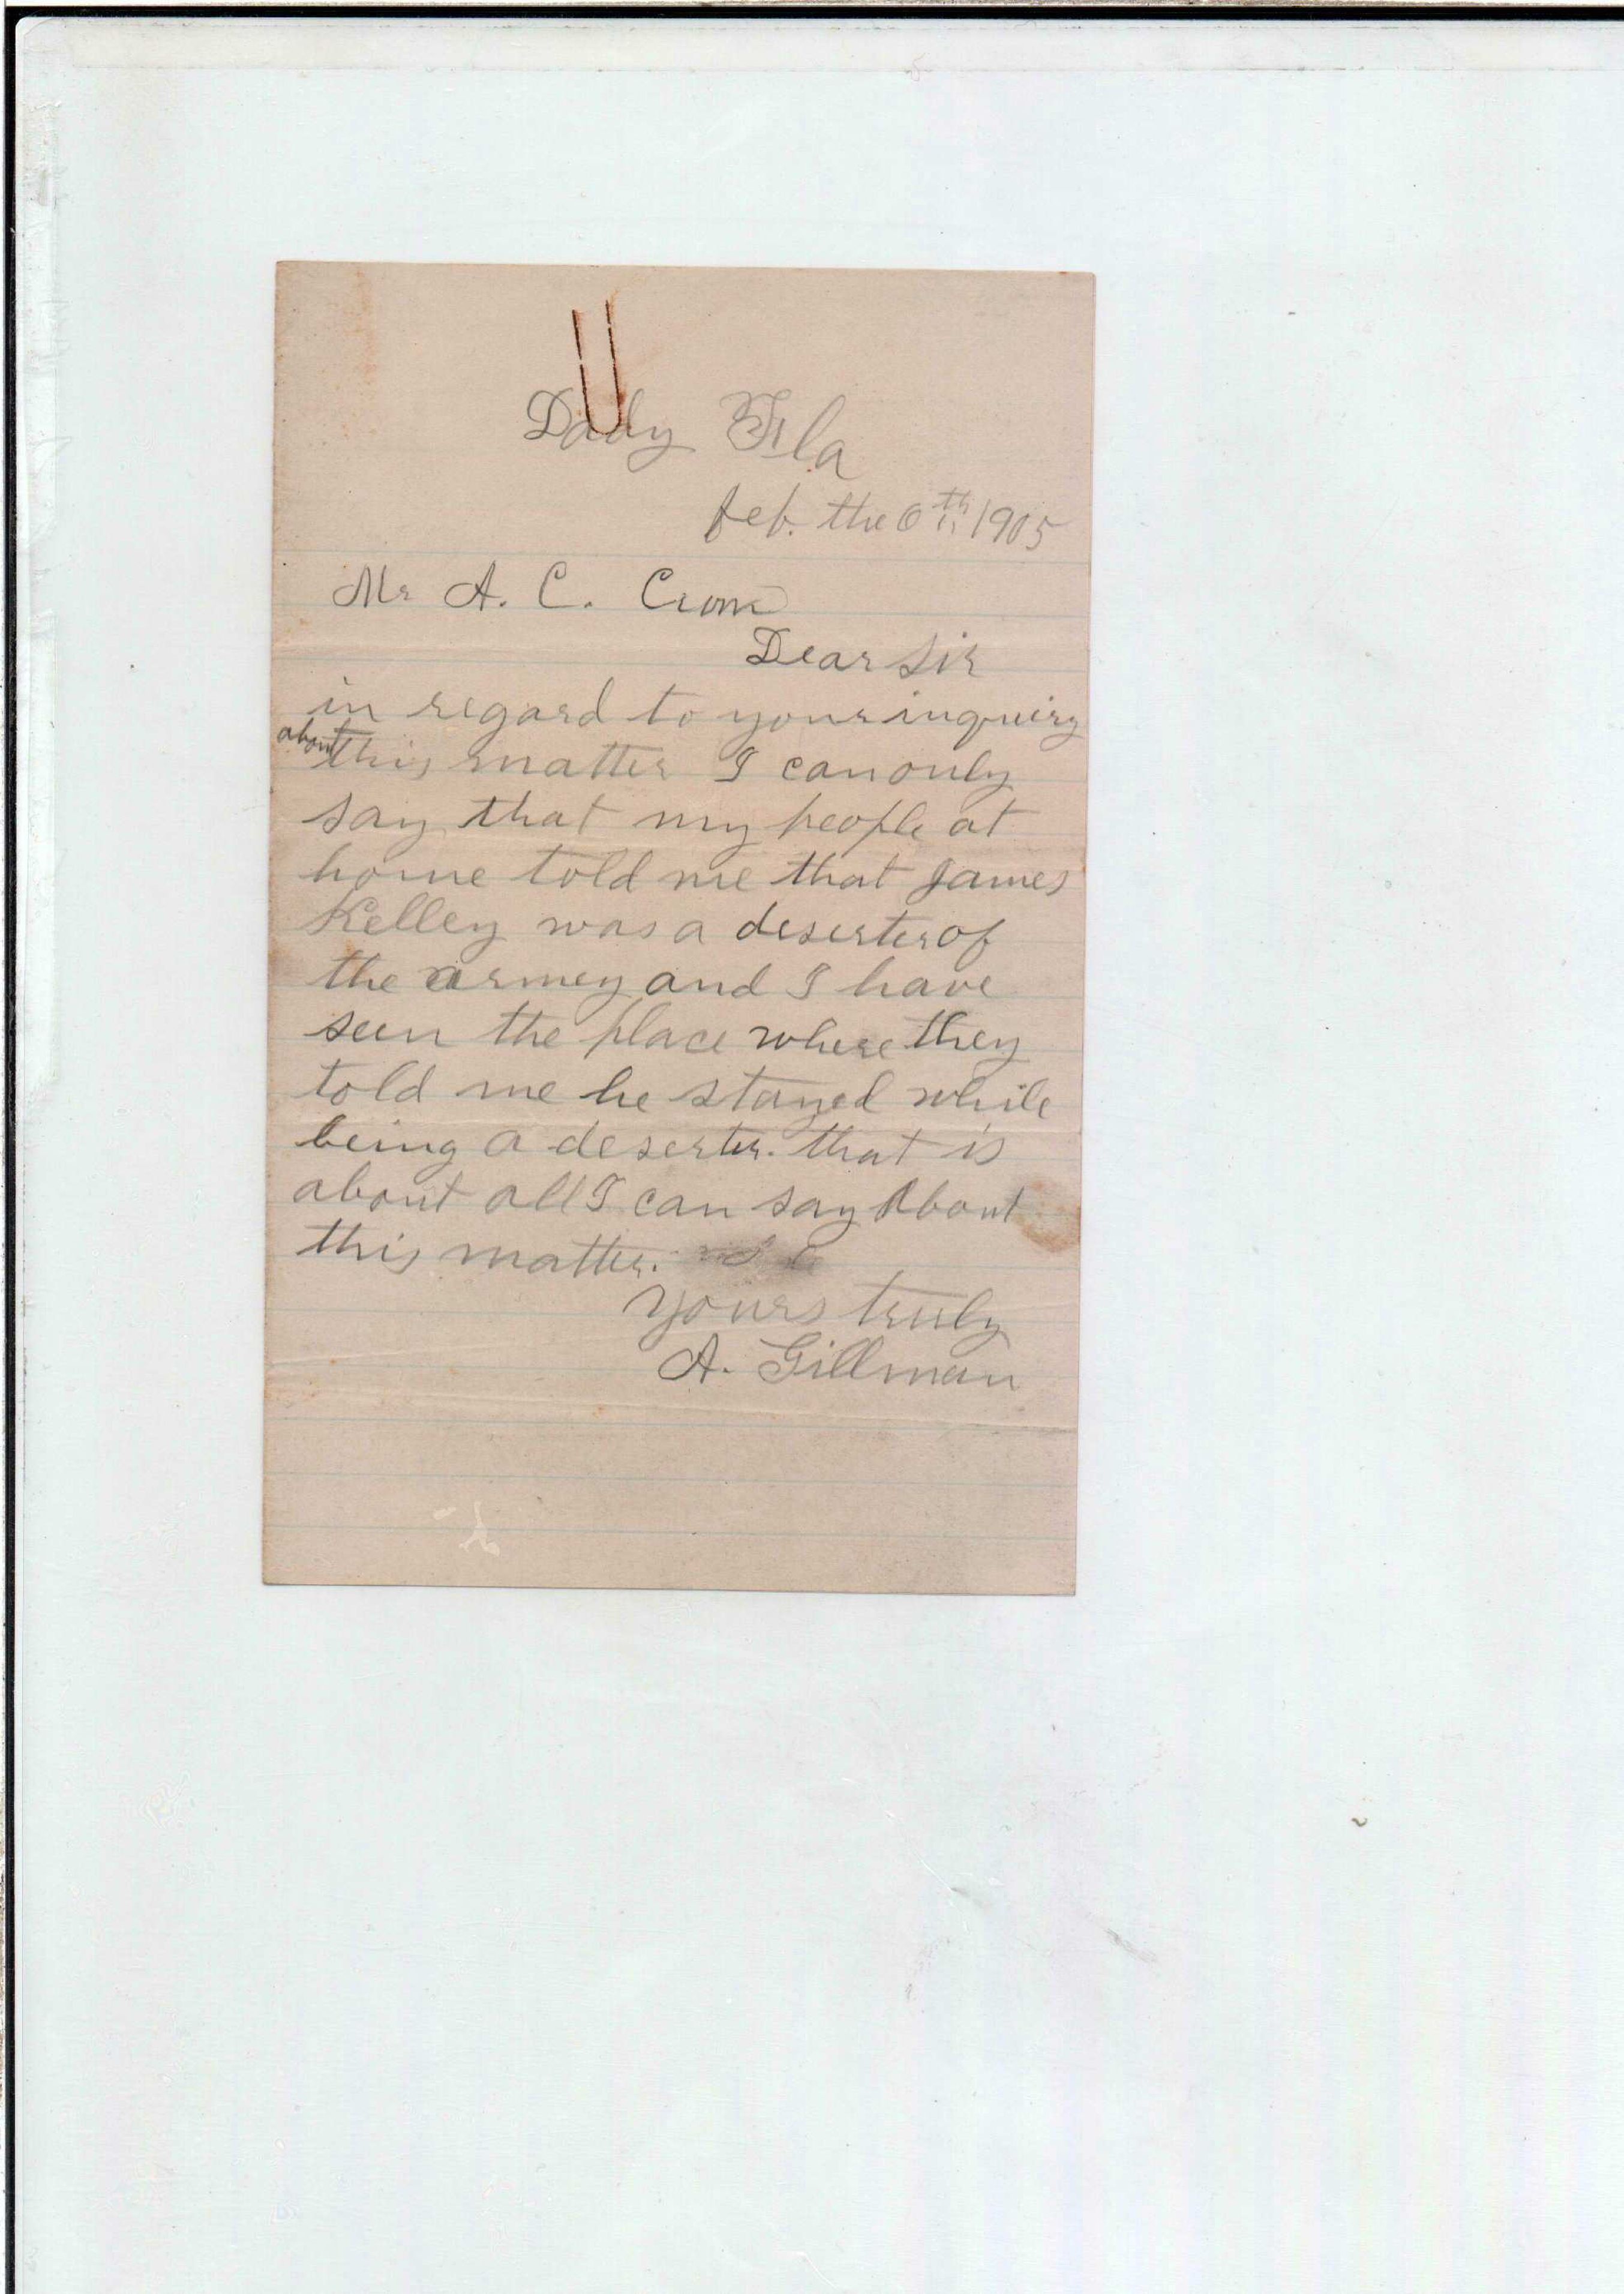 Dady Fla
feb. the 6th 1905
Mr A. C. Crom
Dear Sir
in regard to your inquiry
about this matter I can only
say that my people at
home told me that James
Kelley was a deserter of
the armey and I have
seen the place where they
told me he stayed while
being a deserter. that is
about all I can say About
this matter.
Yours truly
A. Gillman